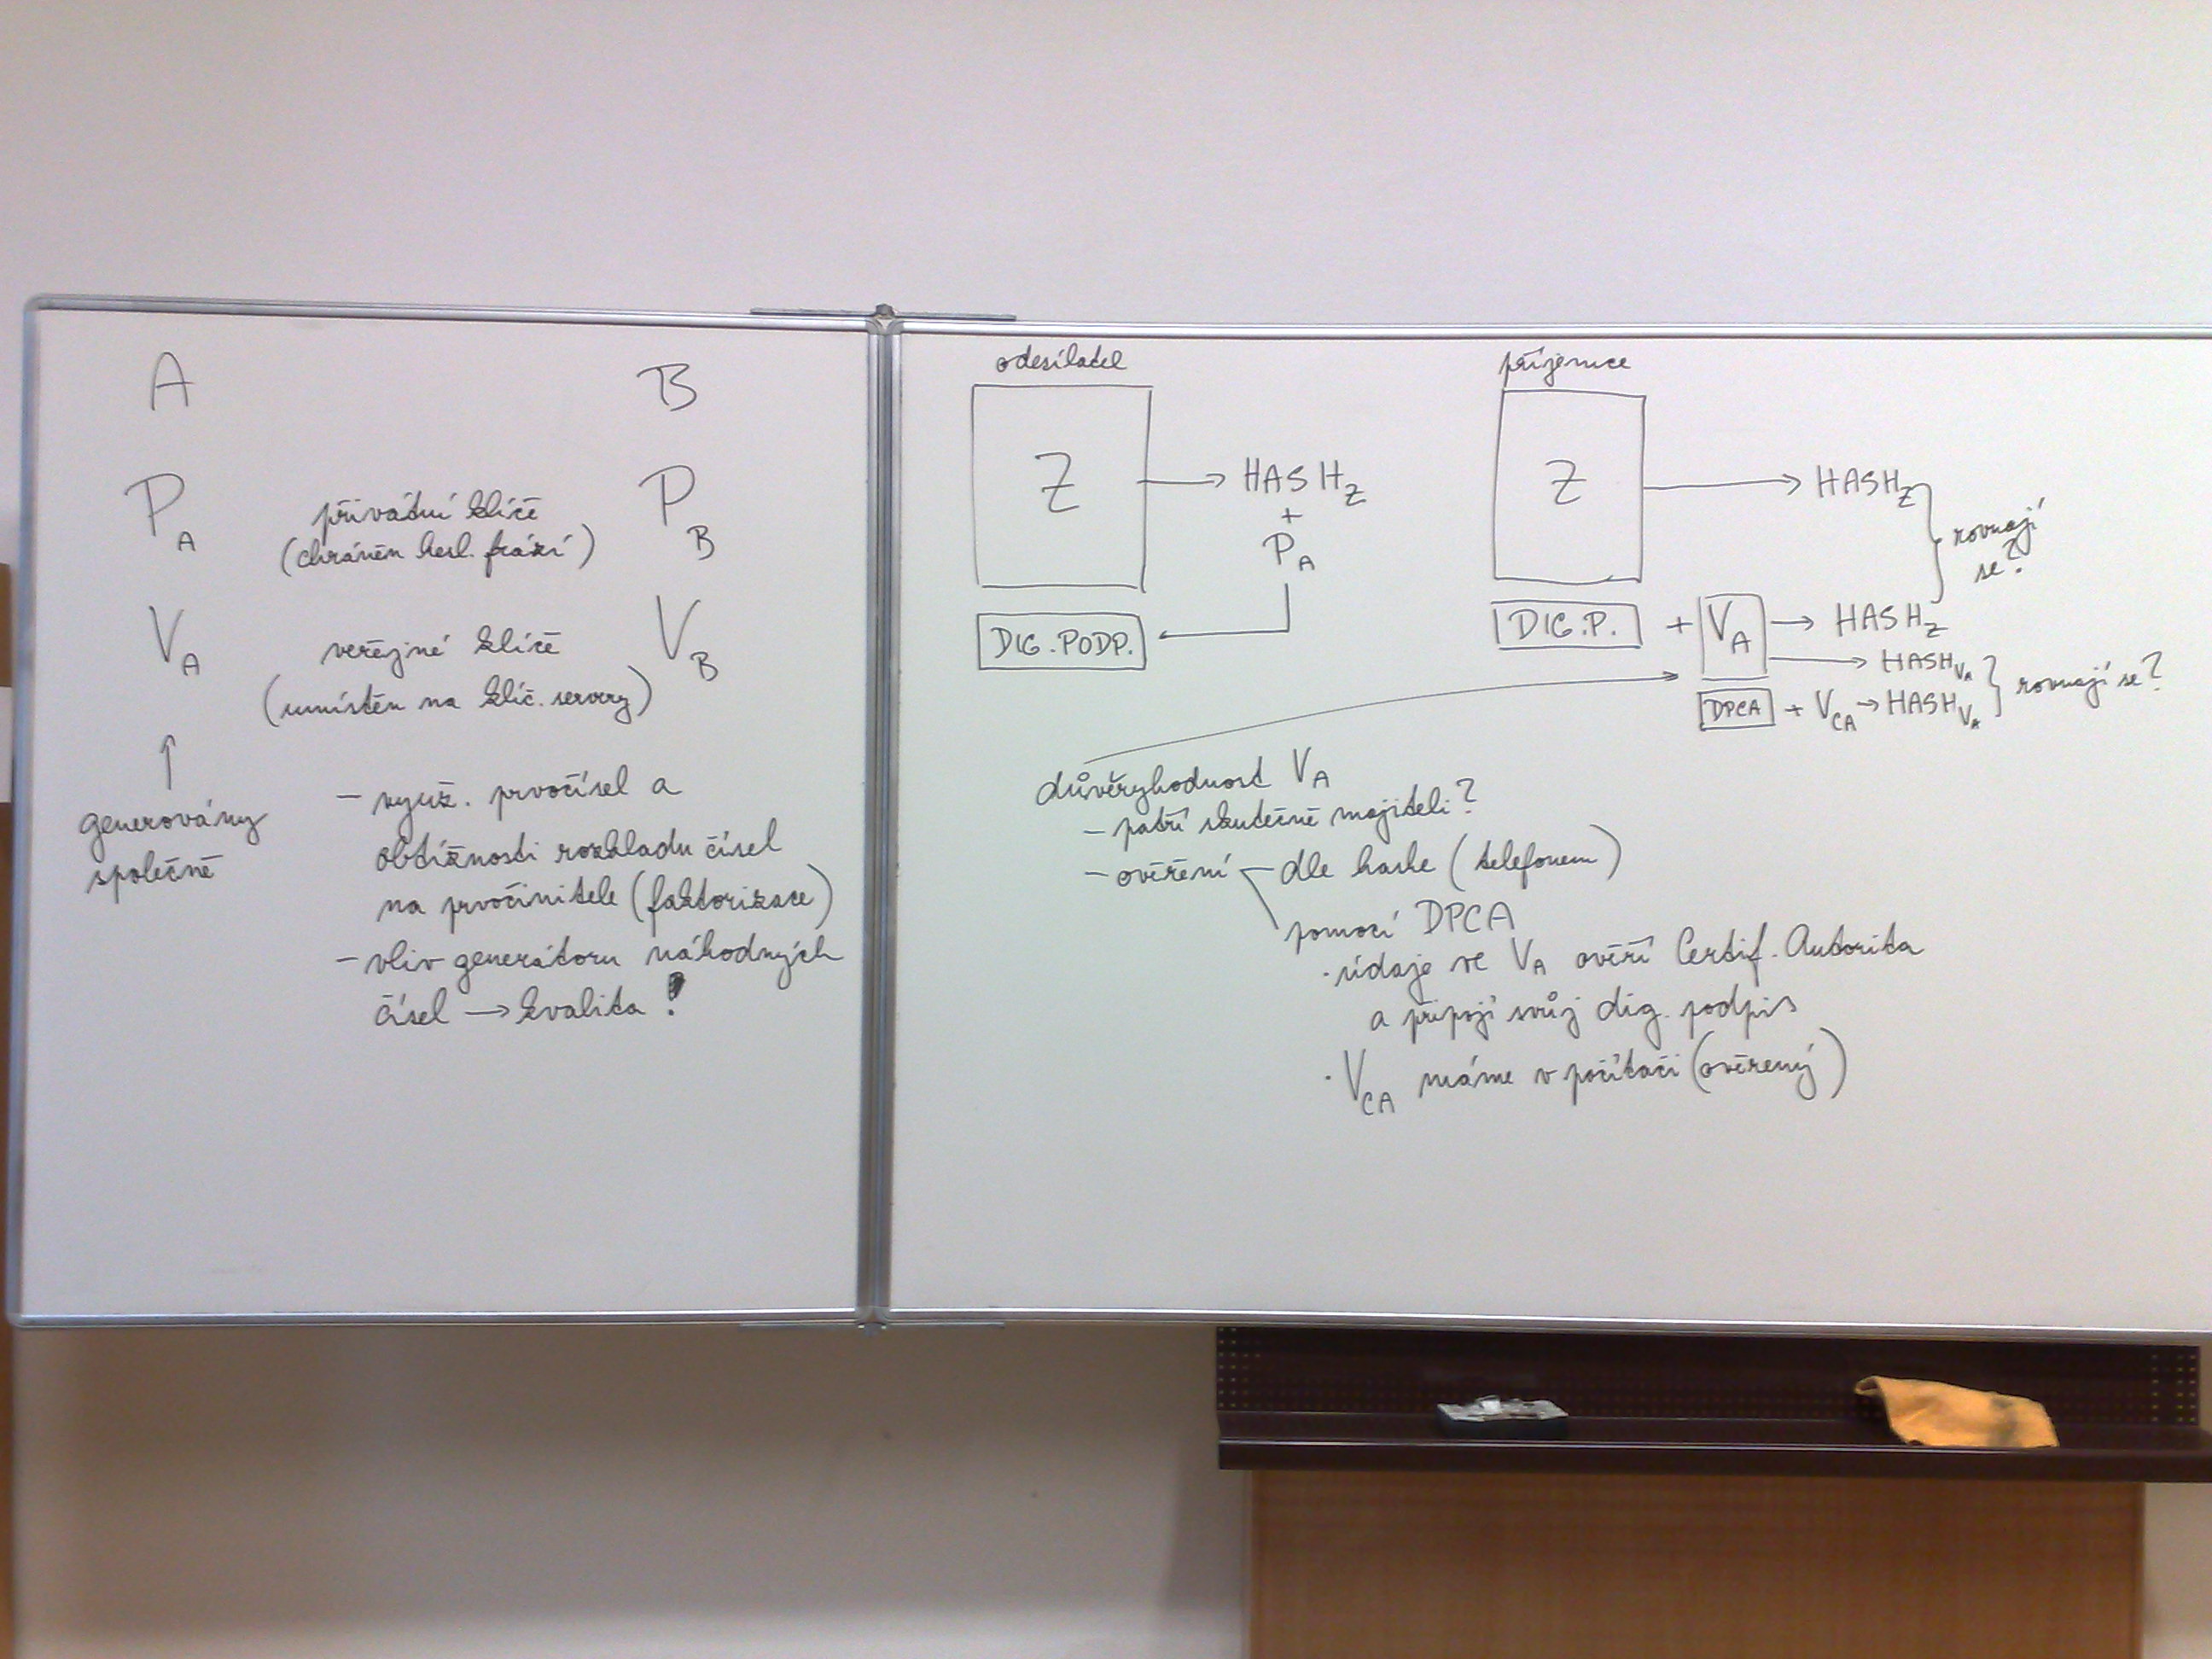 A B
P_A privátní klíče P_B
(chráněn hesl. frází)
V_A veřejné klíče V_B
(umístěn na klíč. servry)
↑
generovány
společně
– využ. prvočísel a
obtížnosti rozkladu čísel
na prvočinitele (faktorizace)
– vliv generátoru náhodných
čísel → kvalita!
odesílatel
Z → HASH_Z
+
P_A
DIG. PODP.
příjemce
Z → HASH_Z
rovnají
se?
DIG. P. + V_A → HASH_Z
→ HASH_VA
DPCA + V_CA → HASH_VA
rovnají se?
důvěryhodnost V_A
– patří skutečně majiteli?
– ověření – dle hashe (telefonem)
pomocí DPCA
· údaje ve V_A ověří Certif. Autorita
a připojí svůj dig. podpis
· V_CA máme v počítači (ověřený)